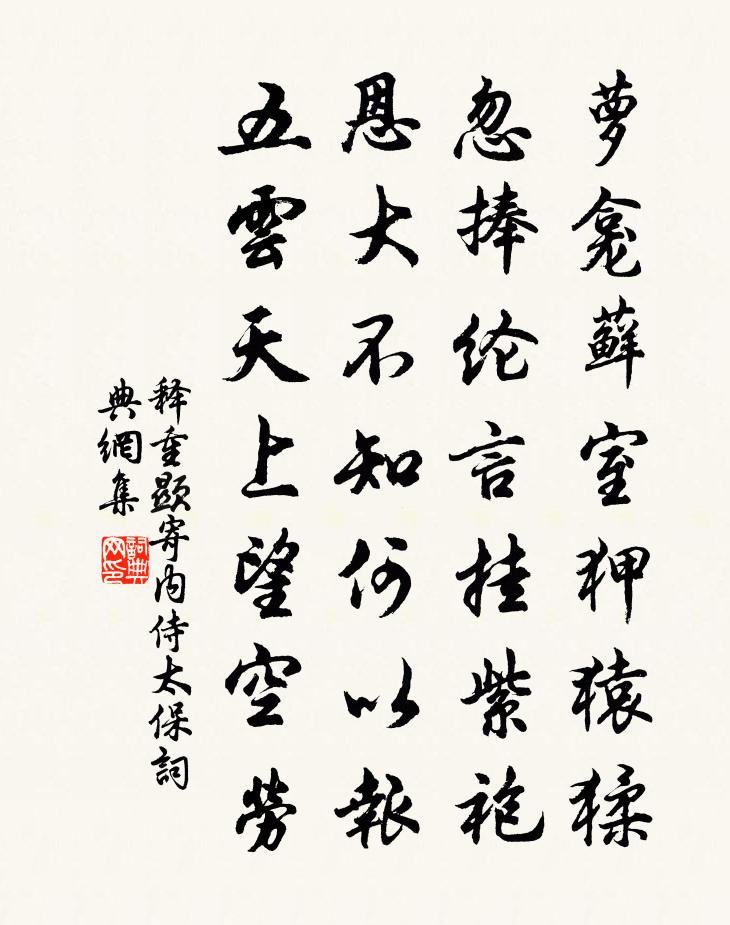 萝龛藓室狎猿猱
忽捧纶言挂紫袍
恩大不知何以報
五雲天上望空勞
释重顯寄内侍太保詞
典網集
詞典网印